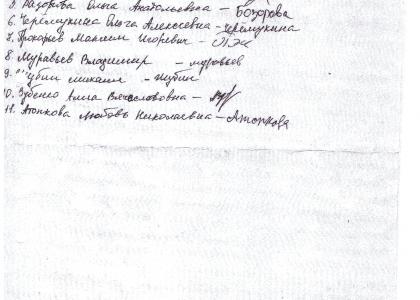 5. Базарова Ольга Анатольевна – Базарова
6. Черемухина Ольга Алексеевна – Черемухина
7. Прокофьев Максим Игоревич –
8. Муравьев Владимир – муравьев
9. михаил
10. Зубенко Алла Вячеславовна –
11. Атопкова Любовь Николаевна – Атопкова